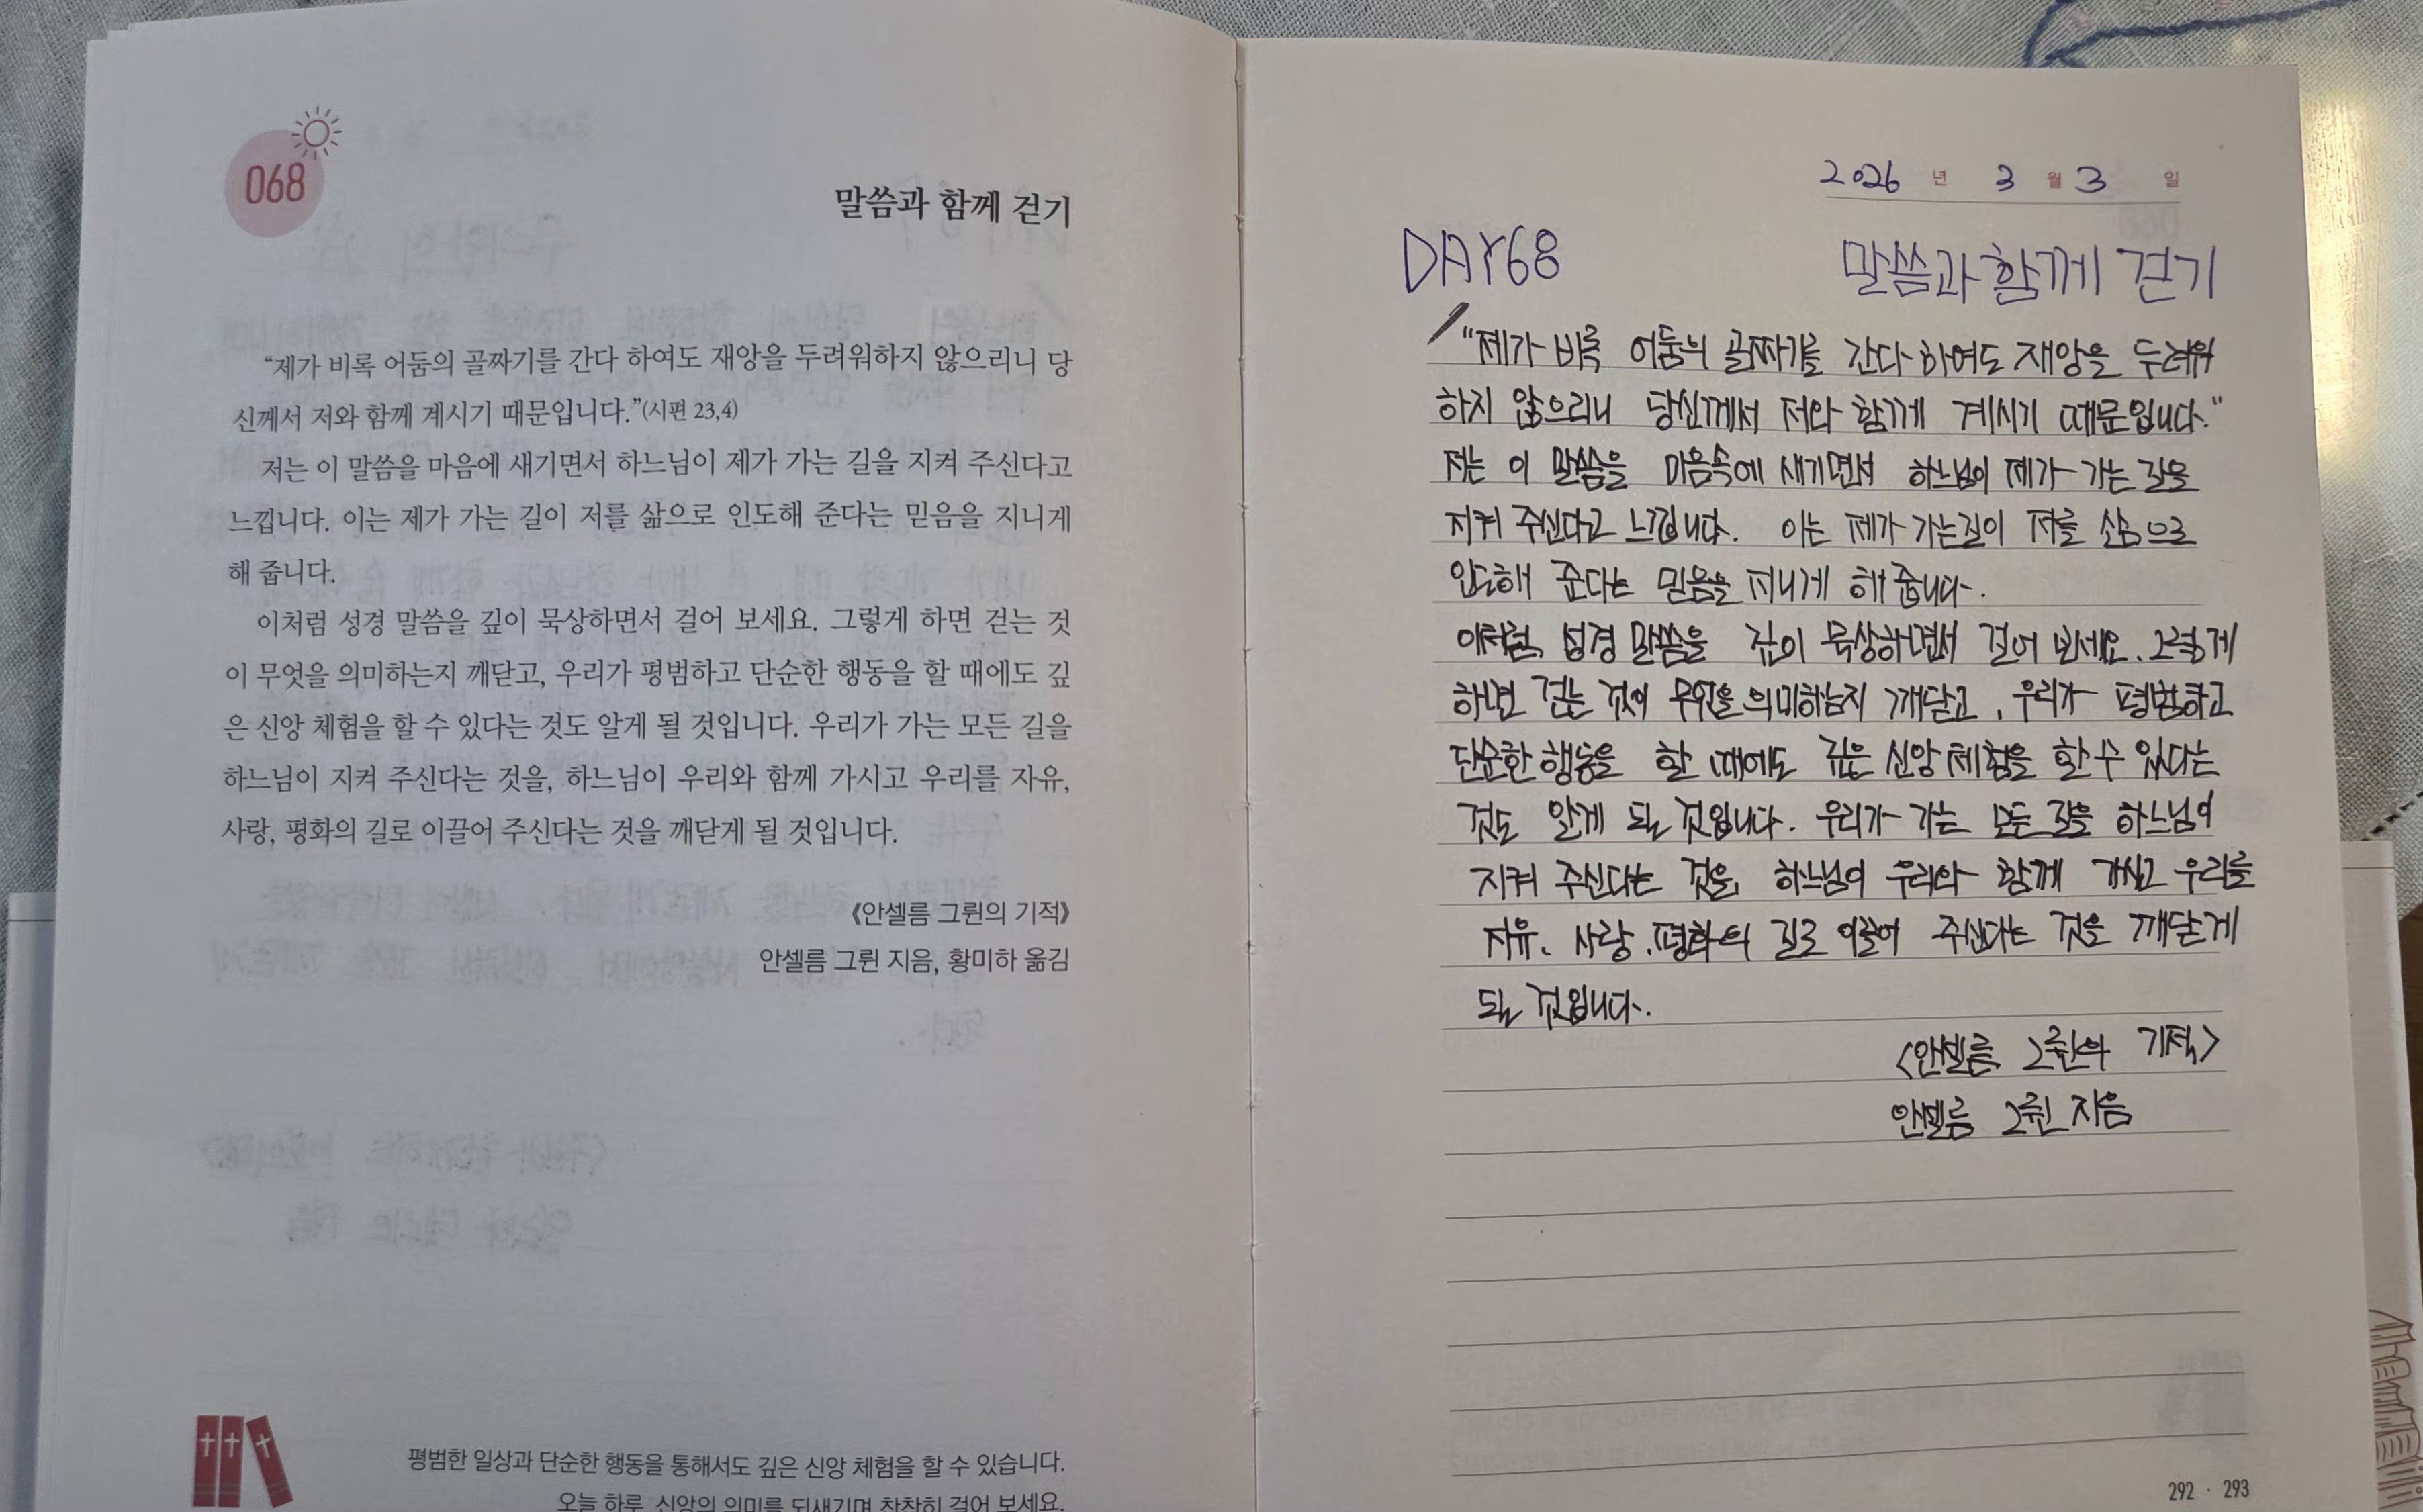 068
말씀과 함께 걷기
“제가 비록 어둠의 골짜기를 간다 하여도 재앙을 두려워하지 않으리니 당
신께서 저와 함께 계시기 때문입니다.”(시편 23,4)
저는 이 말씀을 마음에 새기면서 하느님이 제가 가는 길을 지켜 주신다고
느낍니다. 이는 제가 가는 길이 저를 삶으로 인도해 준다는 믿음을 지니게
해 줍니다.
이처럼 성경 말씀을 깊이 묵상하면서 걸어 보세요. 그렇게 하면 걷는 것
이 무엇을 의미하는지 깨닫고, 우리가 평범하고 단순한 행동을 할 때에도 깊
은 신앙 체험을 할 수 있다는 것도 알게 될 것입니다. 우리가 가는 모든 길을
하느님이 지켜 주신다는 것을, 하느님이 우리와 함께 가시고 우리를 자유,
사랑, 평화의 길로 이끌어 주신다는 것을 깨닫게 될 것입니다.
《안셀름 그륀의 기적》
안셀름 그륀 지음, 황미하 옮김
평범한 일상과 단순한 행동을 통해서도 깊은 신앙 체험을 할 수 있습니다.
오늘 하루, 신앙의 의미를 되새기며 찬찬히 걸어 보세요.
2026 년 3 월 3 일
DAY68 말씀과 함께 걷기
“제가 비록 어둠의 골짜기를 간다 하여도 재앙을 두려워
하지 않으리니 당신께서 저와 함께 계시기 때문입니다."
저는 이 말씀을 마음속에 새기면서 하느님이 제가 가는 길을
지켜 주신다고 느낍니다. 이는 제가 가는길이 저를 삶으로
인도해 준다는 믿음을 지니게 해 줍니다.
이처럼, 성경 말씀을 깊이 묵상하면서 걸어 보세요. 그렇게
하면 걷는 것이 무엇을 의미하는지 깨닫고, 우리가 평범하고
단순한 행동을 할 때에도 깊은 신앙 체험을 할 수 있다는
것도 알게 될 것입니다. 우리가 가는 모든 길을 하느님이
지켜 주신다는 것을, 하느님이 우리와 함께 가시고 우리를
자유, 사랑, 평화의 길로 이끌어 주신다는 것을 깨닫게
될 것입니다.
<안셀름 그륀의 기적>
안셀름 그륀 지음
292 · 293